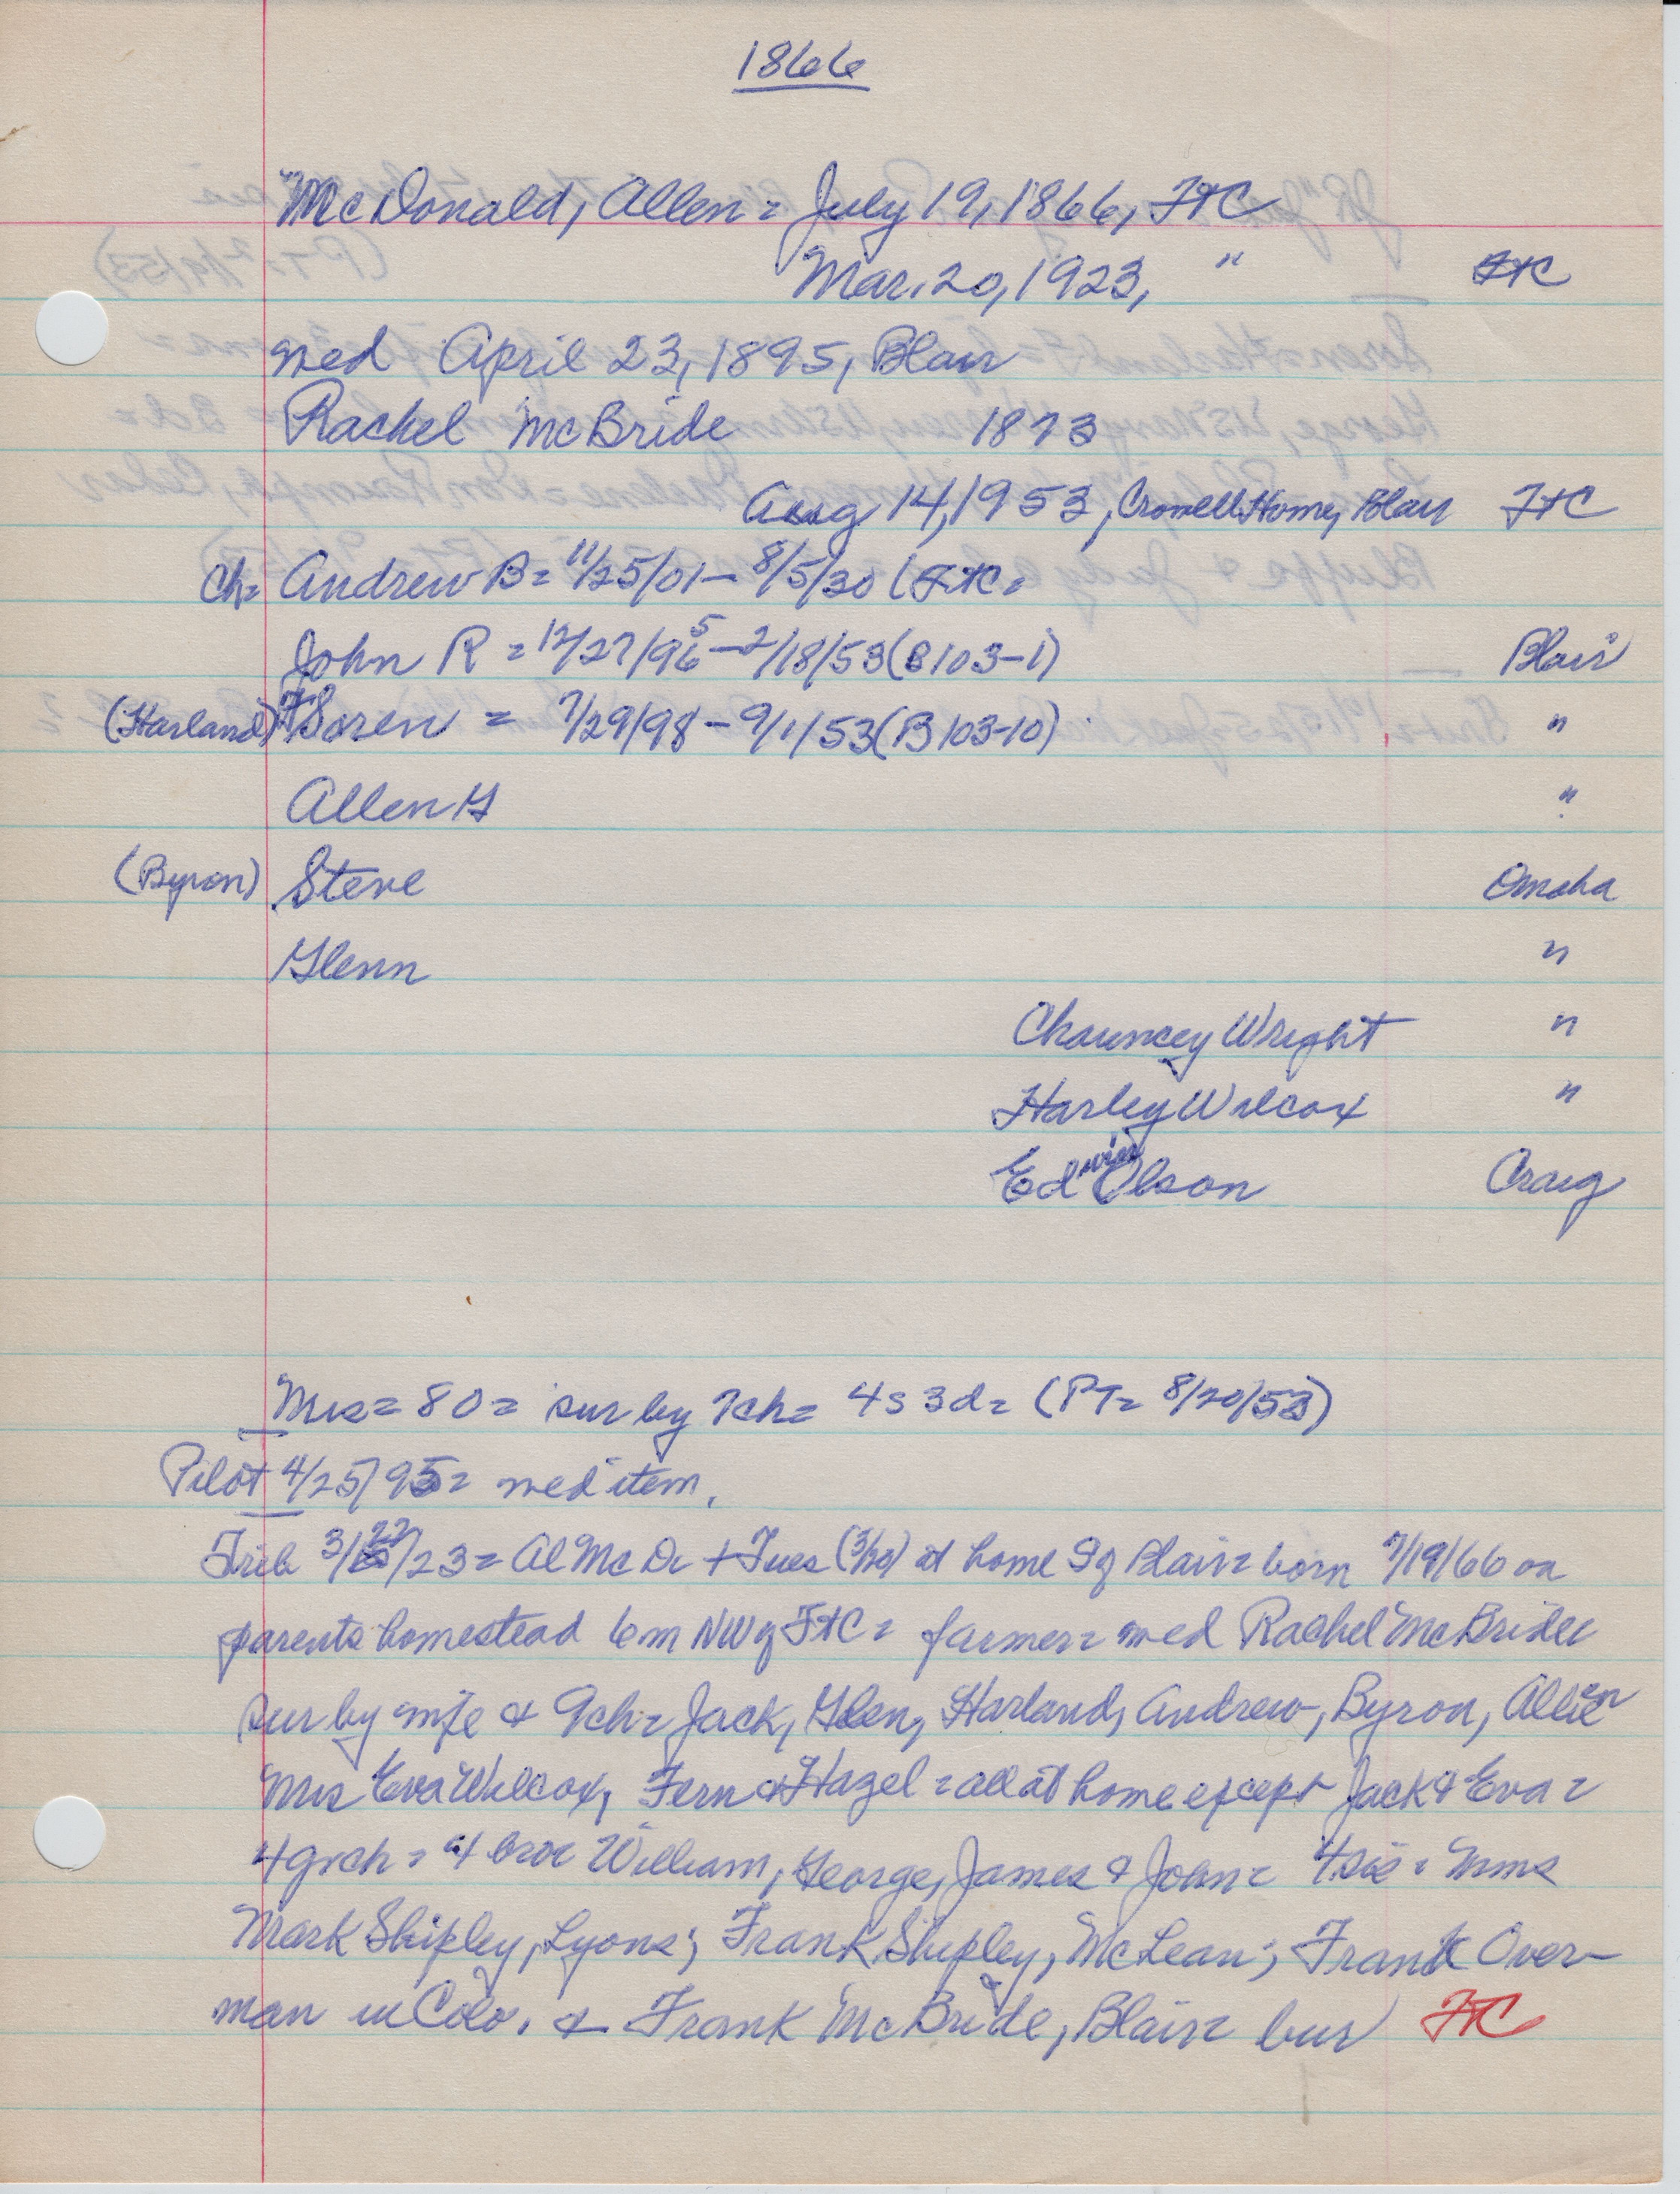 1866
McDonald, Allen = July 19, 1866, FtC
Mar. 20, 1923, " FtC
med April 23, 1895, Blair
Rachel McBride 1873
Aug 14, 1953, Crowell Home, Blair FtC
Ch= Andrew B = 11/25/01 - 8/5/30 (FtC =
John R = 12/27/96 5 - 2/18/53 (B103-1) Blair
(Harland) F Soren = 7/29/98 - 9/1/53 (B103-10) "
Allen G "
(Byron) Steve Omaha
Glenn "
Chauncey Wright "
Harley Wilcox "
Edwin Olson Craig
Mrs = 80 = sur by 7ch = 4s 3d = (PT= 8/20/53)
Pilot 4/25/95 = med item.
Trib 3/22/23 = Al McD = + Tues (3/20) at home S of Blair = born 7/19/66 on
parents homestead 6m NW of FtC = farmer = med Rachel McBride =
sur by wife & 9ch = Jack, Glen, Harland, Andrew, Byron, Allen
Mrs Eva Wilcox, Fern & Hazel = all at home except Jack & Eva =
4 grch = 4 bro = William, George, James & John = 4 sis = Mms
Mark Shipley, Lyons; Frank Shipley, McLean; Frank Over-
man in Colo. & Frank McBride, Blair = bur FtC